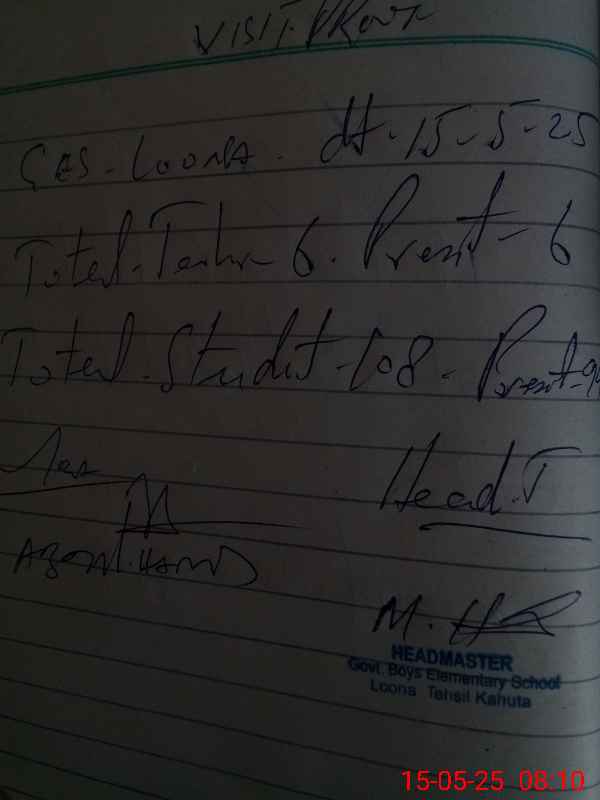 VISIT. PROFT
GES - LOONA. dt. 15-5-25
Total. Teacher - 6. Present - 6
Total. Student - 108. Present - 9
Head.T
M.
HEADMASTER
Govt. Boys Elementary School
Loona Tehsil Kahuta
15-05-25 08:10